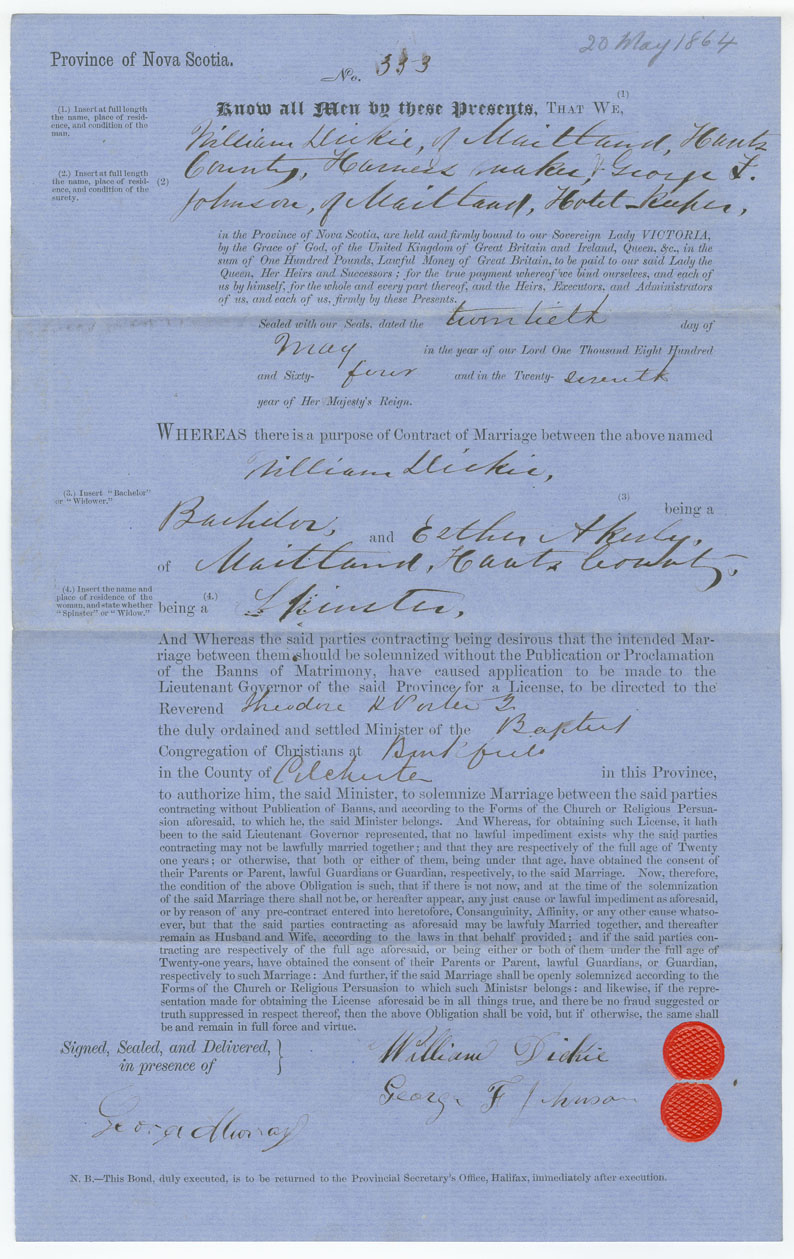 20 May 1864
Province of Nova Scotia.
No. 333
(1)
Know all Men by these Presents, THAT WE,
(1.) Insert at full length
the name, place of resid-
ence, and condition of the
man.
William Dickie, of Maitland, Hants
County, Harness maker, & George F.
(2.) Insert at full length
the name, place of resid-
ence, and condition of the
surety.
(2)
Johnson, of Maitland, Hotel-Keeper,
in the Province of Nova Scotia, are held and firmly bound to our Sovereign Lady VICTORIA,
by the Grace of God, of the United Kingdom of Great Britain and Ireland, Queen, &c., in the
sum of One Hundred Pounds, Lawful Money of Great Britain, to be paid to our said Lady the
Queen, Her Heirs and Successors; for the true payment whereof we bind ourselves, and each of
us by himself, for the whole and every part thereof, and the Heirs, Executors, and Administrators
of us, and each of us, firmly by these Presents.
Sealed with our Seals, dated the twentieth day of
May in the year of our Lord One Thousand Eight Hundred
and Sixty- four and in the Twenty- seventh
year of Her Majesty's Reign.
WHEREAS there is a purpose of Contract of Marriage between the above named
William Dickie,
(3.) Insert "Bachelor"
or "Widower."
(3)
being a
Bachelor, and Esther Akerly,
of Maitland, Hants County,
(4.) Insert the name and
place of residence of the
woman, and state whether
"Spinster" or "Widow."
(4.)
being a Spinster,
And Whereas the said parties contracting being desirous that the intended Mar-
riage between them should be solemnized without the Publication or Proclamation
of the Banns of Matrimony, have caused application to be made to the
Lieutenant Governor of the said Province for a License, to be directed to the
Reverend Theodore H Porter
the duly ordained and settled Minister of the Baptist
Congregation of Christians at
in the County of Colchester in this Province,
to authorize him, the said Minister, to solemnize Marriage between the said parties
contracting without Publication of Banns, and according to the Forms of the Church or Religious Persua-
sion aforesaid, to which he, the said Minister belongs. And Whereas, for obtaining such License, it hath
been to the said Lieutenant Governor represented, that no lawful impediment exists why the said parties
contracting may not be lawfully married together; and that they are respectively of the full age of Twenty
one years; or otherwise, that both or either of them, being under that age, have obtained the consent of
their Parents or Parent, lawful Guardians or Guardian, respectively, to the said Marriage. Now, therefore,
the condition of the above Obligation is such, that if there is not now, and at the time of the solemnization
of the said Marriage there shall not be, or hereafter appear, any just cause or lawful impediment as aforesaid,
or by reason of any pre-contract entered into heretofore, Consanguinity, Affinity, or any other cause whatso-
ever, but that the said parties contracting as aforesaid may be lawfuly Married together, and thereafter
remain as Husband and Wife, according to the laws in that behalf provided; and if the said parties con-
tracting are respectively of the full age aforesaid, or being either or both of them under the full age of
Twenty-one years, have obtained the consent of their Parents or Parent, lawful Guardians, or Guardian,
respectively to such Marriage: And further, if the said Marriage shall be openly solemnized according to the
Forms of the Church or Religious Persuasion to which such Ministar belongs: and likewise, if the repre-
sentation made for obtaining the License aforesaid be in all things true, and there be no fraud suggested or
truth suppressed in respect thereof, then the above Obligation shall be void, but if otherwise, the same shall
be and remain in full force and virtue.
Signed, Sealed, and Delivered,
in presence of
William Dickie
George F Johnson
George Murray
N. B.—This Bond, duly executed, is to be returned to the Provincial Secretary's Office, Halifax, immediately after execution.